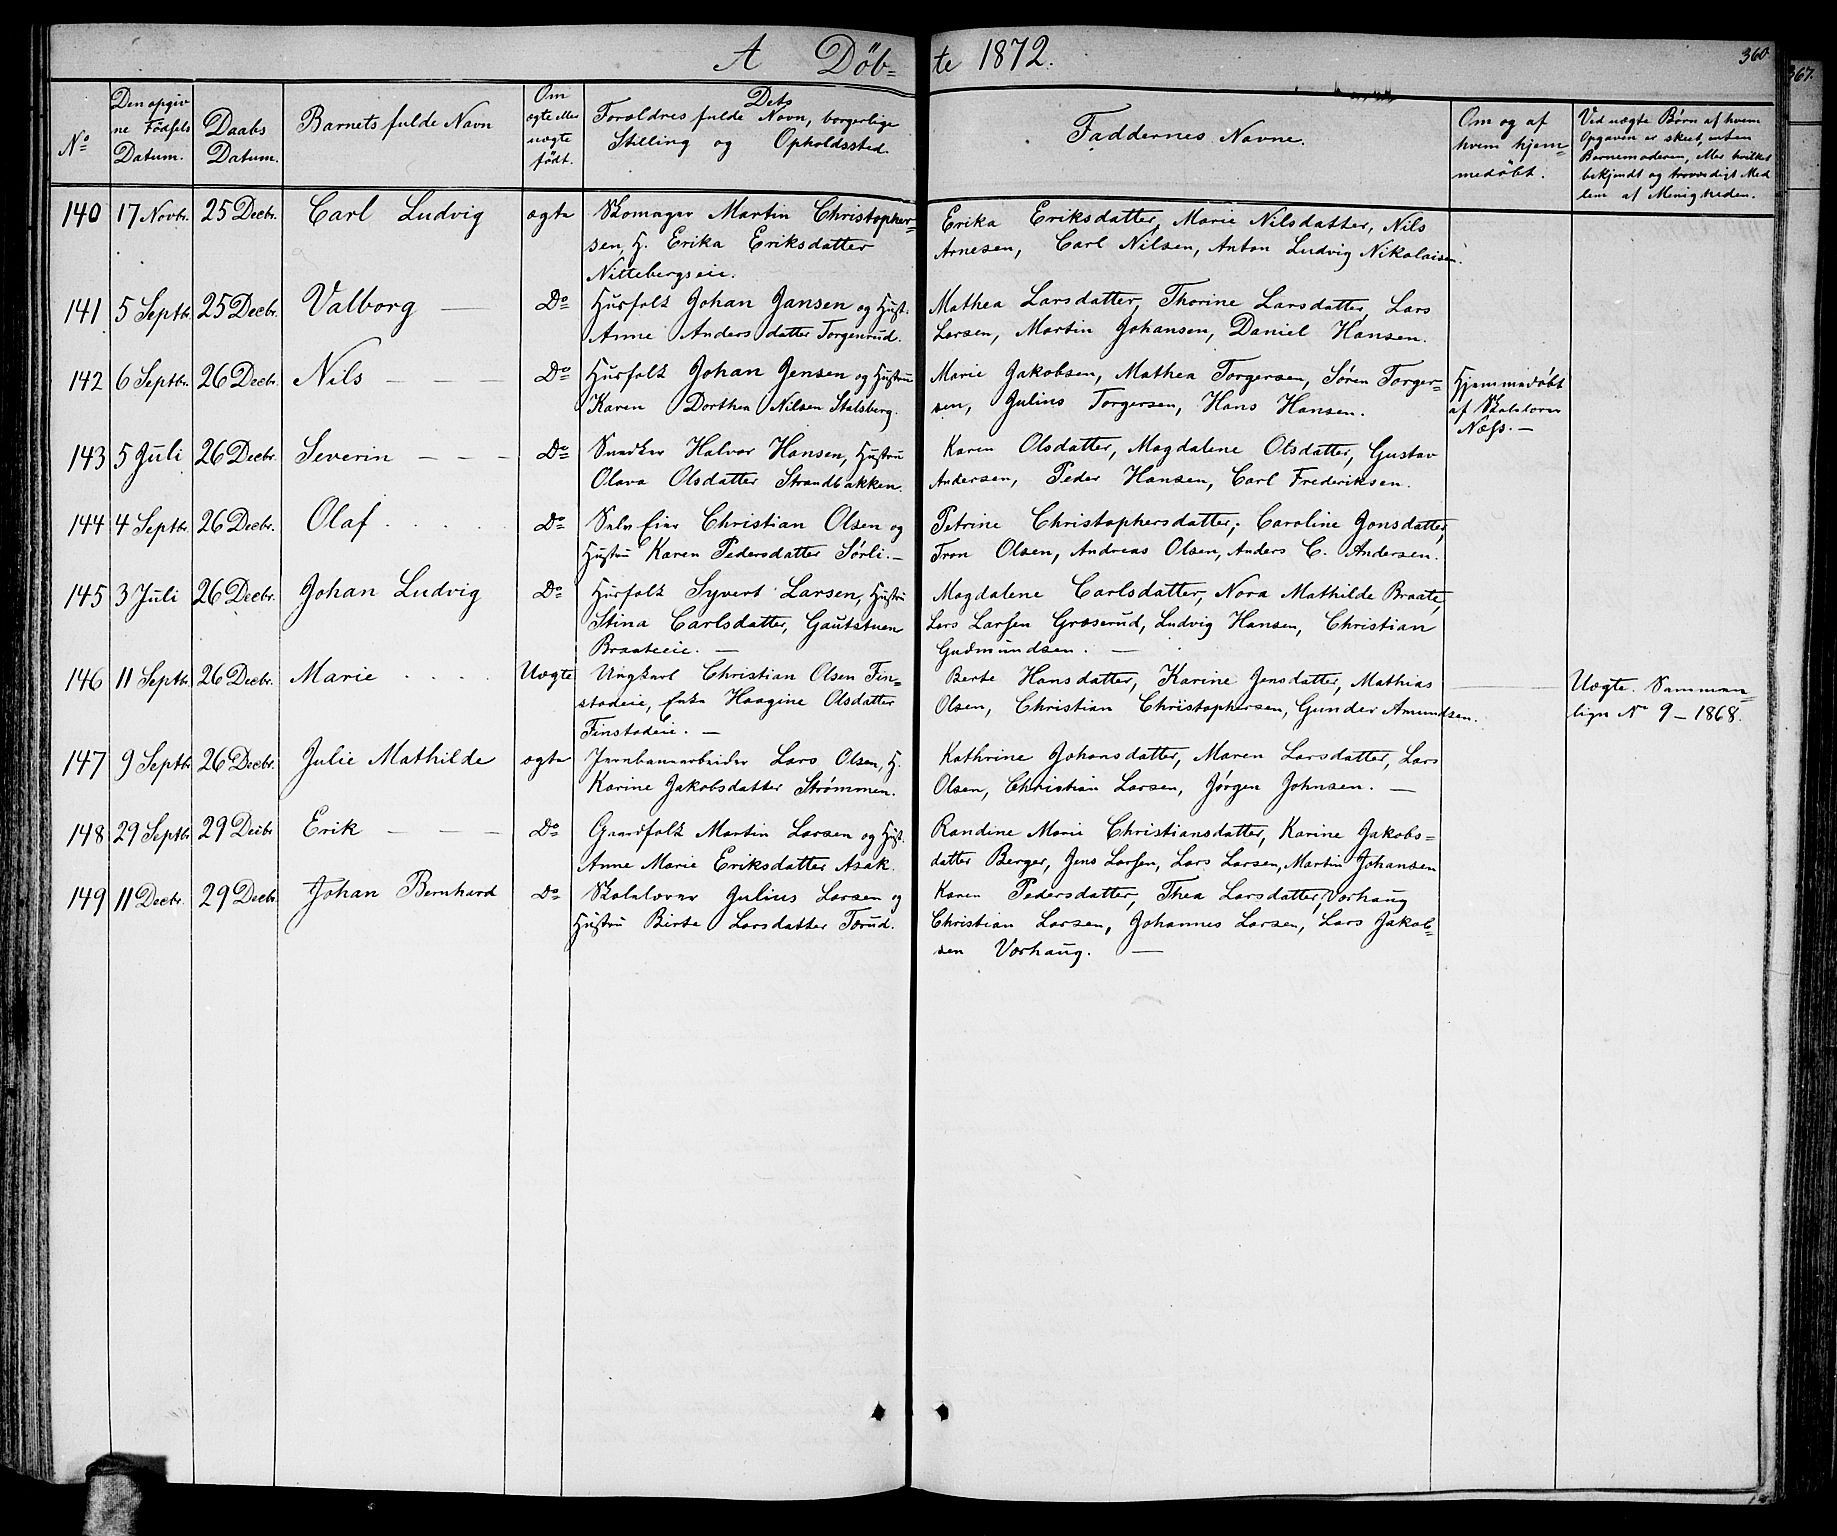 A Döb- te 1872.
360
367.
No
Den opgiv
ne Födsels
Datum.
Daabs
Datum.
Barnets fulde Navn
Om
ægte eller
uægte
født.
Dets
Forældres fulde Navn, borgerlige
Stilling og Opholdssted.
Faddernes Navne.
Om og af
hvem hjem=
medøbt.
Ved uægte Børn af hvem
Opgaven er skeet, enten
Barnemoderen, eller hvilket
bekjendt og troværdigt Med
lem af Menigheden.
140 17 Novbr. 25 Decbr. Carl Ludvig ægte Skomager Martin Christopher= Erika Eriksdatter, Marie Nilsdatter, Nils
sen, H. Erika Eriksdatter Arnesen, Carl Nilsen, Anton Ludvig Nikolaisen.
Nittebergseie.
141 5 Septbr. 25 Decbr. Valborg — Do Husfolk Johan Jansen og Hust. Mathea Larsdatter, Thorine Larsdatter, Lars
Anne Andersdatter Torgenrud. Larsen, Martin Johansen, Daniel Hansen.
142 6 Septbr. 26 Decbr. Nils — — — Do Husfolk Johan Jensen og Hustru Marie Jakobsen, Mathea Torgersen, Søren Torger= Hjemmedøbt
Karen Dorthea Nilsen Stalsberg. sen, Julius Torgersen, Hans Hansen. af Skolelærer
Næss. —
143 5 Juli 26 Decbr. Severin — — — Do Snedker Halvor Hansen, Hustru Karen Olsdatter, Magdalene Olsdatter, Gustav
Olava Olsdatter Strandbakken. Andersen, Peder Hansen, Carl Frederiksen.
144 4 Septbr. 26 Decbr. Olaf . . . . Do Selveier Christian Olsen og Petrine Christophersdatter, Caroline Jonsdatter,
Hustru Karen Pedersdatter Sørli. — Tron Olsen, Andreas Olsen, Anders C. Andersen.
145 3 Juli 26 Decbr. Johan Ludvig Do Husfolk Syvert Larsen, Hustru Magdalene Carlsdatter, Nora Mathilde Braate,
Stina Carlsdatter, Gautstuen Lars Larsen Græserud, Ludvig Hansen, Christian
Braateeie. — Gudmundsen. —
146 11 Septbr. 26 Decbr. Marie . . . . Uægte Ungkarl Christian Olsen Fin= Berte Hansdatter, Karine Jensdatter, Mathias Uægte. Samman=
stadeie, Enke Haagine Olsdatter Olsen, Christian Christophersen, Gunder Amundsen. lign No 9 – 1868.
Finstadeie. —
147 9 Septbr. 26 Decbr. Julie Mathilde ægte Jernbanearbeider Lars Olsen, H. Kathrine Johansdatter, Maren Larsdatter, Lars
Karine Jakobsdatter Strømmen. Olsen, Christian Larsen, Jørgen Johnsen. —
148 29 Septbr. 29 Decbr Erik — — — Do Gaardfolk Martin Larsen og Hust. Randine Marie Christiansdatter, Karine Jakobs=
Anne Marie Eriksdatter Asak. datter Berger, Jens Larsen, Lars Larsen, Martin Johansen
149 11 Decbr. 29 Decbr. Johan Bernhard Do Skolelærer Julius Larsen og Karen Pedersdatter, Thea Larsdatter, Vorhaug
Hustru Birte Larsdatter Tærud. Christian Larsen, Johannes Larsen, Lars Jakob=
sen Vorhaug. —